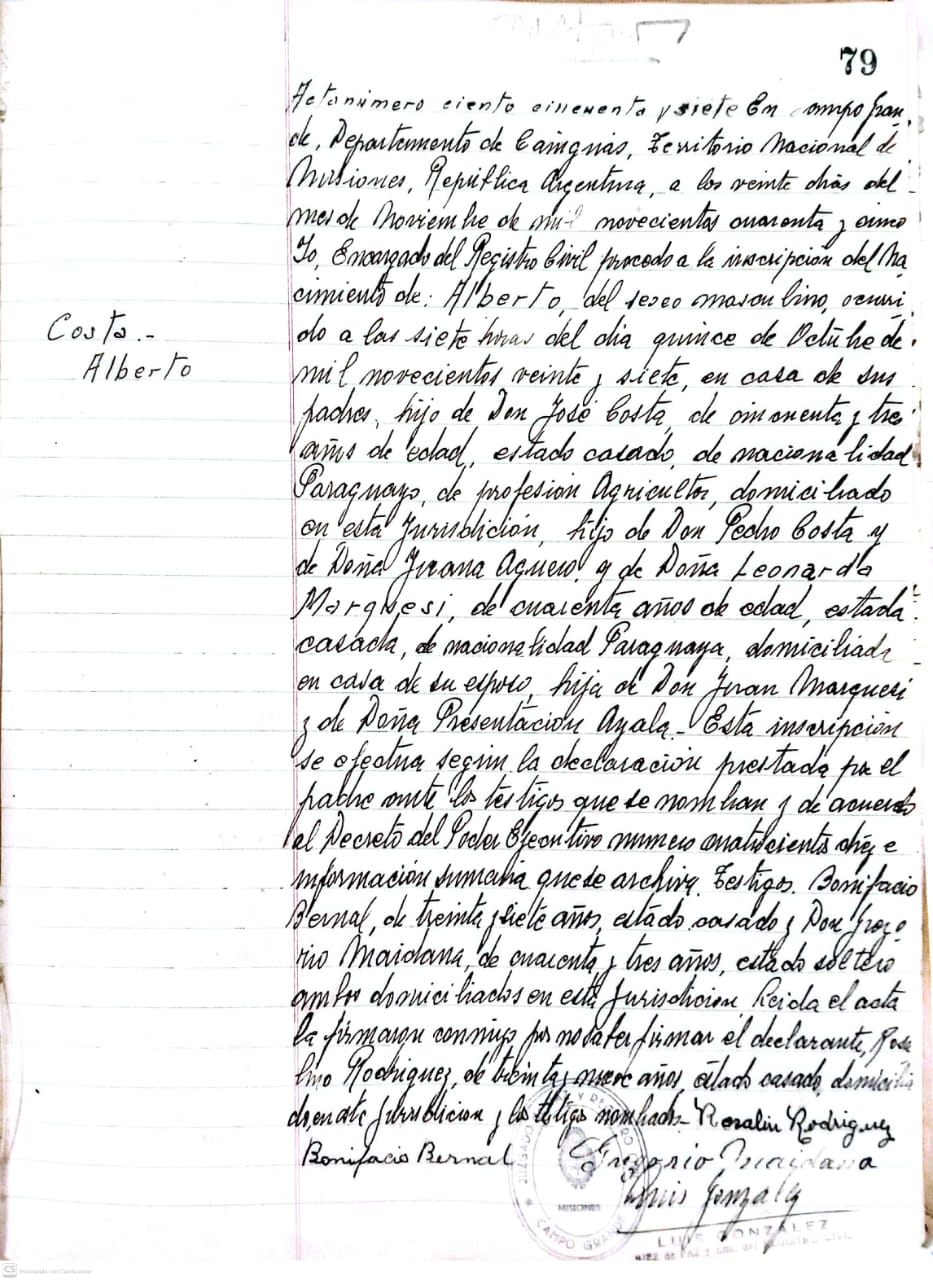 79
Acta número ciento cincuenta y siete En Campo Gran-
de, Departamento de Cainguás, Territorio Nacional de
Misiones, República Argentina, a los veinte días del
mes de Noviembre de mil novecientos cuarenta y cinco
Yo, Encargado del Registro Civil procedo a la inscripción del Na
cimiento de: Alberto, del sexo masculino, ocurri
do a las siete horas del dia quince de Octubre de
mil novecientos veinte y siete, en casa de sus
padres, hijo de Don José Costa, de cincuenta y tres
años de edad, estado casado, de nacionalidad
Paraguayo, de profesión Agricultor, domiciliado
en esta Jurisdición, hijo de Don Pedro Costa y
de Doña Juana Aguero, y de Doña Leonarda
Marquesi, de cuarenta años de edad, estada
casada, de nacionalidad Paraguaya, domiciliada
en casa de su esposo, hija de Don Juan Marquesi
y de Doña Presentación Ayala.- Esta inscripción
se efectua según la declaración prestada por el
padre ante los testigos que se nombran y de acuerdo
al Decreto del Poder Ejecutivo numero cuatrocientos diez e
información sumaria que se archiva. Testigos. Bonifacio
Bernal, de treinta y siete años, estado casado y Don Grego
rio Maidana, de cuarenta y tres años, estado soltero
ambos domiciliados en esta Jurisdicion Leida el acta
la firmaron conmigo por no saber firmar el declarante, Rosa
lino Rodriguez, de treinta y nueve años, estado casado, domicilia
do en este Jurisdicion y los testigos nombrados.- Rosalin Rodriguez
Bonifacio Bernal Gregorio Maidana
Luis Gonzalez
Costa.-
Alberto
JUZGADO Y DE
MISIONES
CAMPO GRANDE
LUIS GONZALEZ
JUEZ de PAZ y Enc. del REGISTRO CIVIL
CS Escaneado con CamScanner